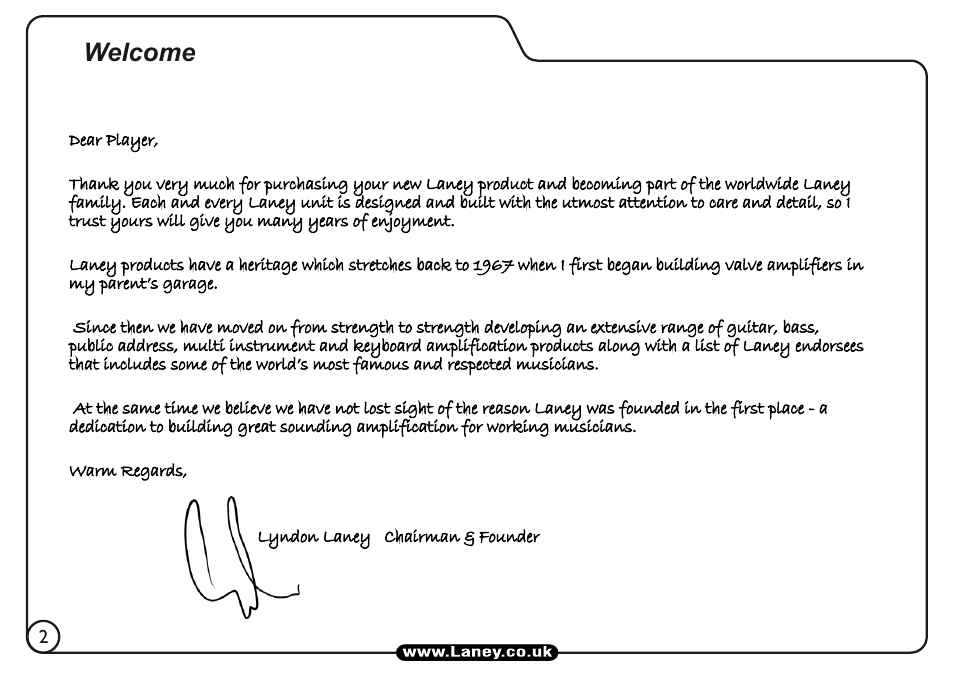 Welcome
Dear Player,
Thank you very much for purchasing your new Laney product and becoming part of the worldwide Laney
family. Each and every Laney unit is designed and built with the utmost attention to care and detail, so I
trust yours will give you many years of enjoyment.
Laney products have a heritage which stretches back to 1967 when I first began building valve amplifiers in
my parent's garage.
Since then we have moved on from strength to strength developing an extensive range of guitar, bass,
public address, multi instrument and keyboard amplification products along with a list of Laney endorsees
that includes some of the world's most famous and respected musicians.
At the same time we believe we have not lost sight of the reason Laney was founded in the first place - a
dedication to building great sounding amplification for working musicians.
Warm Regards,
Lyndon Laney Chairman & Founder
2
www.Laney.co.uk